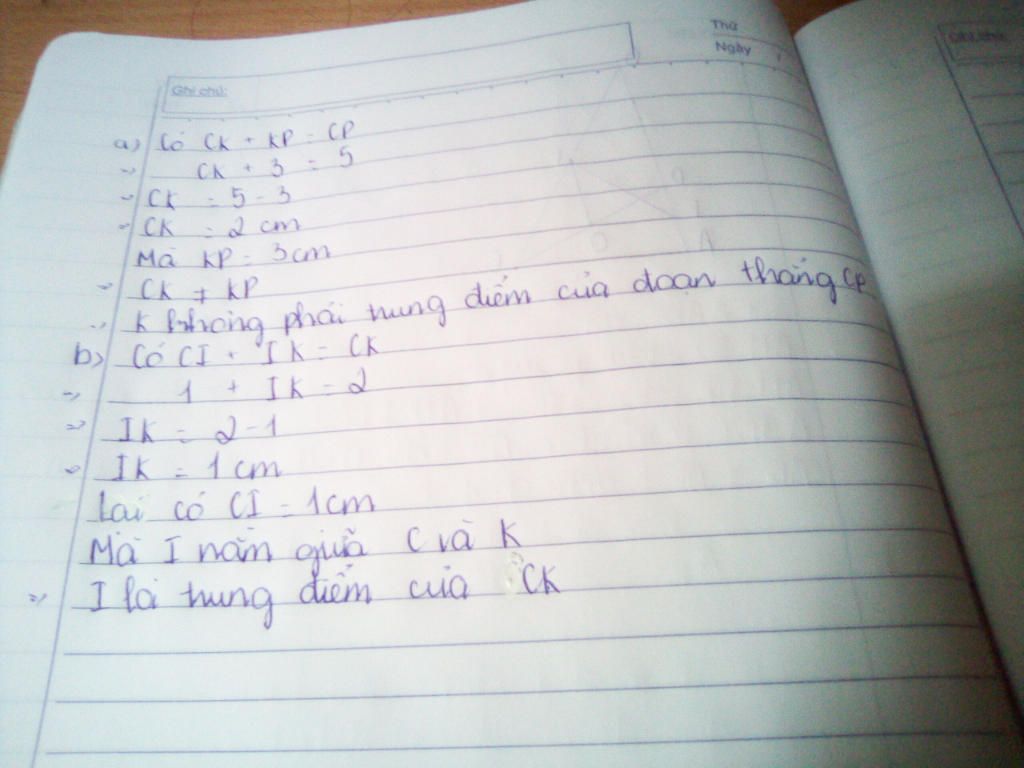 Thứ
Ngày
Ghi chú:
a) Có CK + KP = CP
=> CK + 3 = 5
=> CK = 5 - 3
=> CK = 2 cm
Mà KP = 3cm
=> CK ≠ KP
=> K không phải trung điểm của đoạn thẳng CP
b) Có CI + IK = CK
=> 1 + IK = 2
=> IK = 2 - 1
=> IK = 1 cm
Lại có CI = 1cm
Mà I nằm giữa C và K
=> I là trung điểm của CK
Ghi chú: